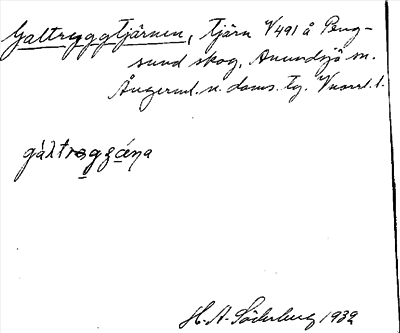 Galtryggtjärnen, tjärn V491 å Peng-
sund skog, Anundsjö sn.
Ångerml. n. doms. tg. Vnorrl. l.
H. A. Söderberg 1932